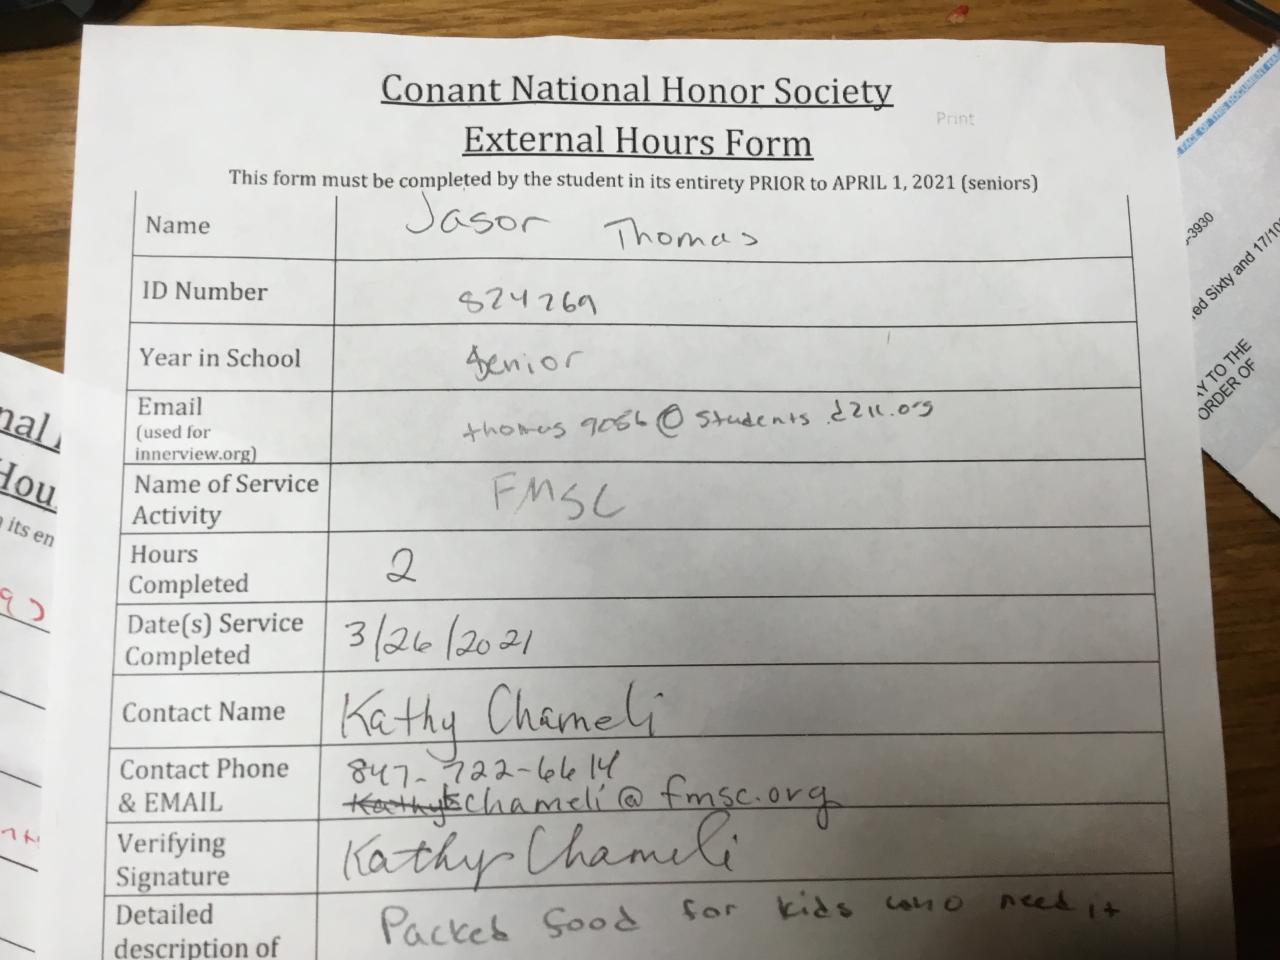 Conant National Honor Society
Print
External Hours Form
This form must be completed by the student in its entirety PRIOR to APRIL 1, 2021 (seniors)
Name Jason Thomas
ID Number 824269
Year in School Senior
Email thomas9056@students.d211.org
(used for
innerview.org)
Name of Service
Activity FMSC
Hours
Completed 2
Date(s) Service
Completed 3/26/2021
Contact Name Kathy Chameli
Contact Phone 847-722-6614
& EMAIL kchameli@fmsc.org
Verifying
Signature Kathy Chameli
Detailed Packed food for kids who need it
description of
nal
Hou
its en
-3930
ed Sixty and 17/10
AY TO THE
ORDER OF